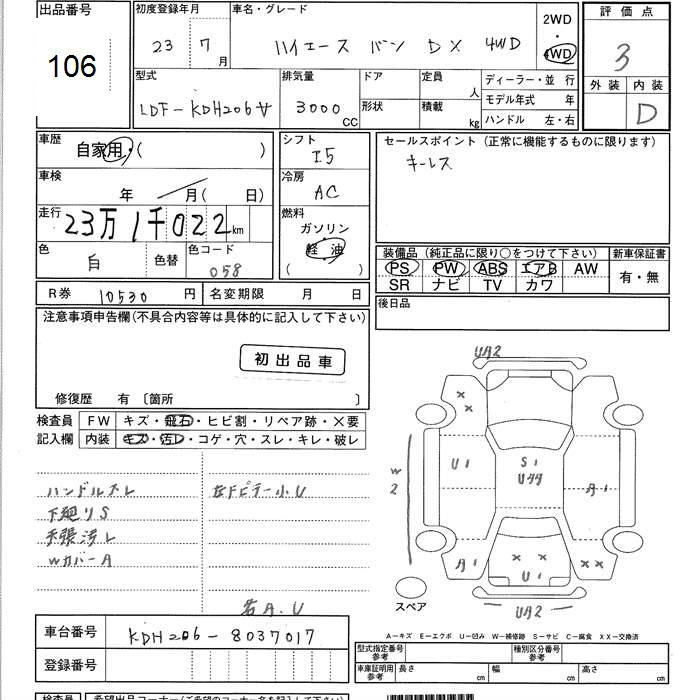 出品番号
106
初度登録年月
23 7月
車名・グレード
ハイエース バン DX 4WD
2WD
・
4WD
評価点
3
外装 内装
D
型式
LDF-KDH206V
排気量
3000CC
ドア
形状
定員
人
積載
kg
ディーラー・並 行
モデル年式 年
ハンドル 左・右
車歴
自家用・( )
車検
年 月( 日)
走行
23万1千022km
色
白
色替
色コード
058
シフト
I5
冷房
AC
燃料
ガソリン
軽油
( )
セールスポイント(正常に機能するものに限ります)
キーレス
装備品(純正品に限り○をつけて下さい)
PS PW ABS エアB AW
SR ナビ TV カワ
新車保証書
有・無
R券 10530円
名変期限 月 日
後日品
注意事項申告欄(不具合内容等は具体的に記入して下さい)
初出品車
修復歴 有 〔箇所 〕
検査員
記入欄
FW キズ・飛石・ヒビ割・リペア跡・×要
内装 キズ・汚レ・コゲ・穴・スレ・キレ・破レ
ハンドルスレ
下廻りS
天張汚レ
WカバーA
左Fピラー小U
若A.U
UA2
W
2
U1
S1
U44
A1
A1
U1
UA2
スペア
A−キズ E−エクボ U−凹み W−補修跡 S−サビ C−腐食 XX−交換済
車台番号
KDH206-8037017
登録番号
型式指定番号
参考
種別区分番号
参考
車庫証明用
参考
長さ cm
幅 cm
高さ cm
検査員
希望出品コーナー(ご希望のコーナー名を記入して下さい)